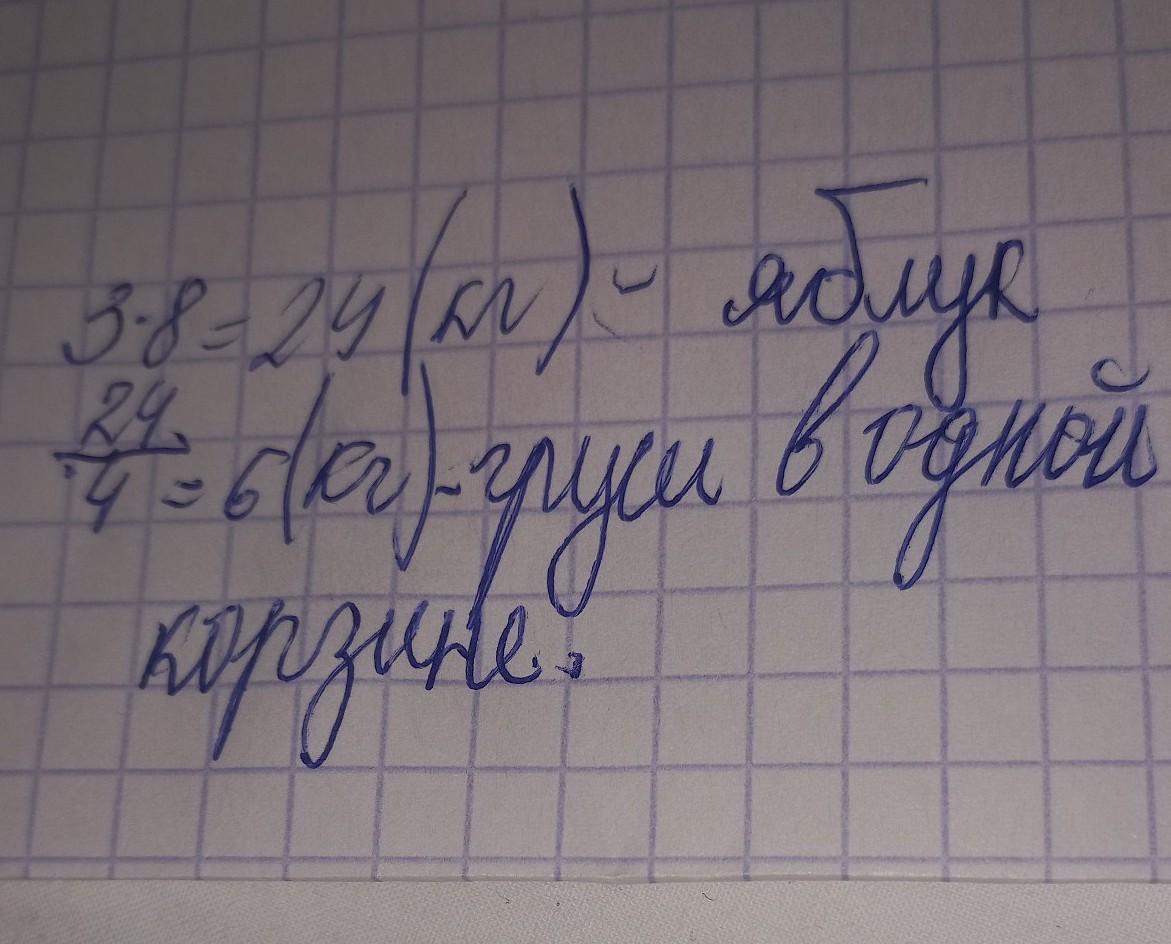 3·8=24(кг) - яблук
24/4=6(кг)-груш в одной
корзине.